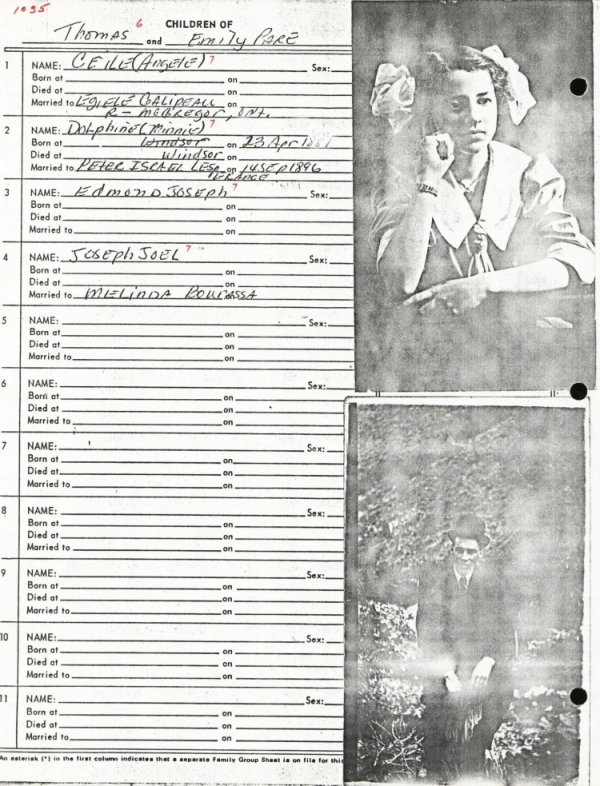 1035
CHILDREN OF
Thomas 6 and Emily PARE
1 NAME: CEILE (Angele) 7 Sex:
Born at on
Died at on
Married to EGIELE GALIPEAU on
R - McGREGOR, ONT.
2 NAME: Dolphine (Minnie) 7
Born at Windsor on 23 Apr
Died at Windsor on
Married to PETER ISRAEL LESP on 14 SEP 1896
ERANCE
3 NAME: EdmonD JOSEPH 7 Sex:
Born at on
Died at on
Married to on
4 NAME: JOSEPH JOEL 7 Sex:
Born at on
Died at on
Married to MELINDA on
5 NAME: Sex:
Born at on
Died at on
Married to on
6 NAME: Sex:
Born at on
Died at on
Married to on
7 NAME: Sex:
Born at on
Died at on
Married to on
8 NAME: Sex:
Born at on
Died at on
Married to on
9 NAME: Sex:
Born at on
Died at on
Married to on
10 NAME: Sex:
Born at on
Died at on
Married to on
11 NAME: Sex:
Born at on
Died at on
Married to on
An asterisk (*) in the first column indicates that a separate Family Group Sheet is on file for